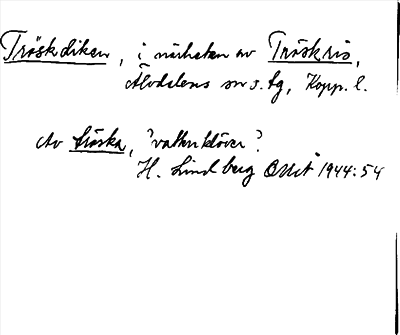 Tröskdiken, i närheten av Tröskris,
Älvdalens sn s. tg, Kopp. l.
Av tröska, "vattenklöver".
H. Lindberg Ortn 1944:54